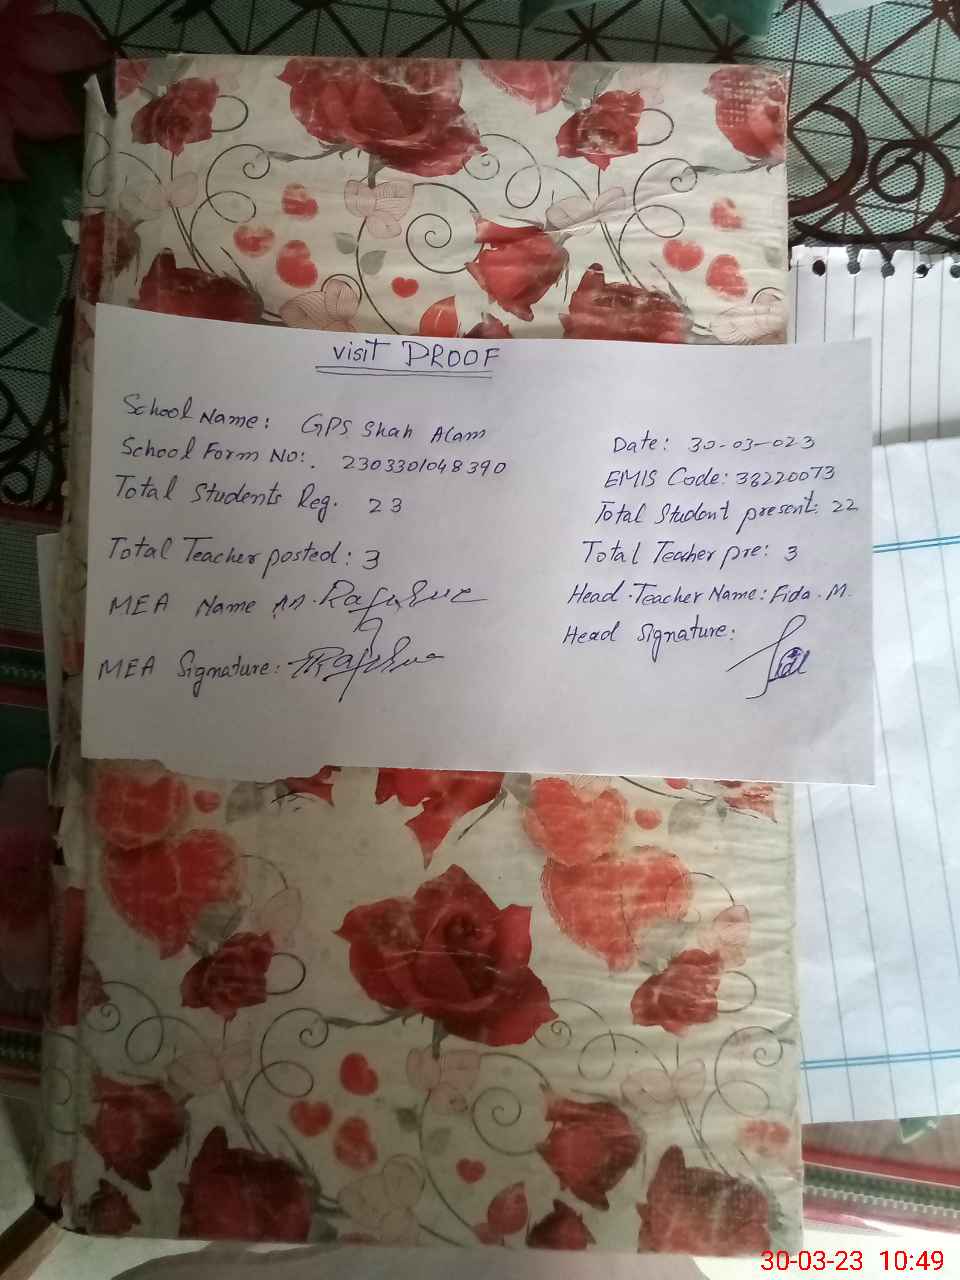 visit PROOF
School Name: GPS Shah Alam
Date: 30-03-023
School Form No:. 2303301048390
EMIS Code: 38220073
Total Students Reg. 23
Total Student present: 22
Total Teacher posted: 3
Total Teacher pre: 3
MEA Name
Head.Teacher Name: Fida.M.
MEA Signature:
Head Signature:
30-03-23 10:49